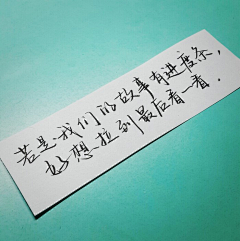 若是我们的故事有进度条，
好想拉到最后看一看.